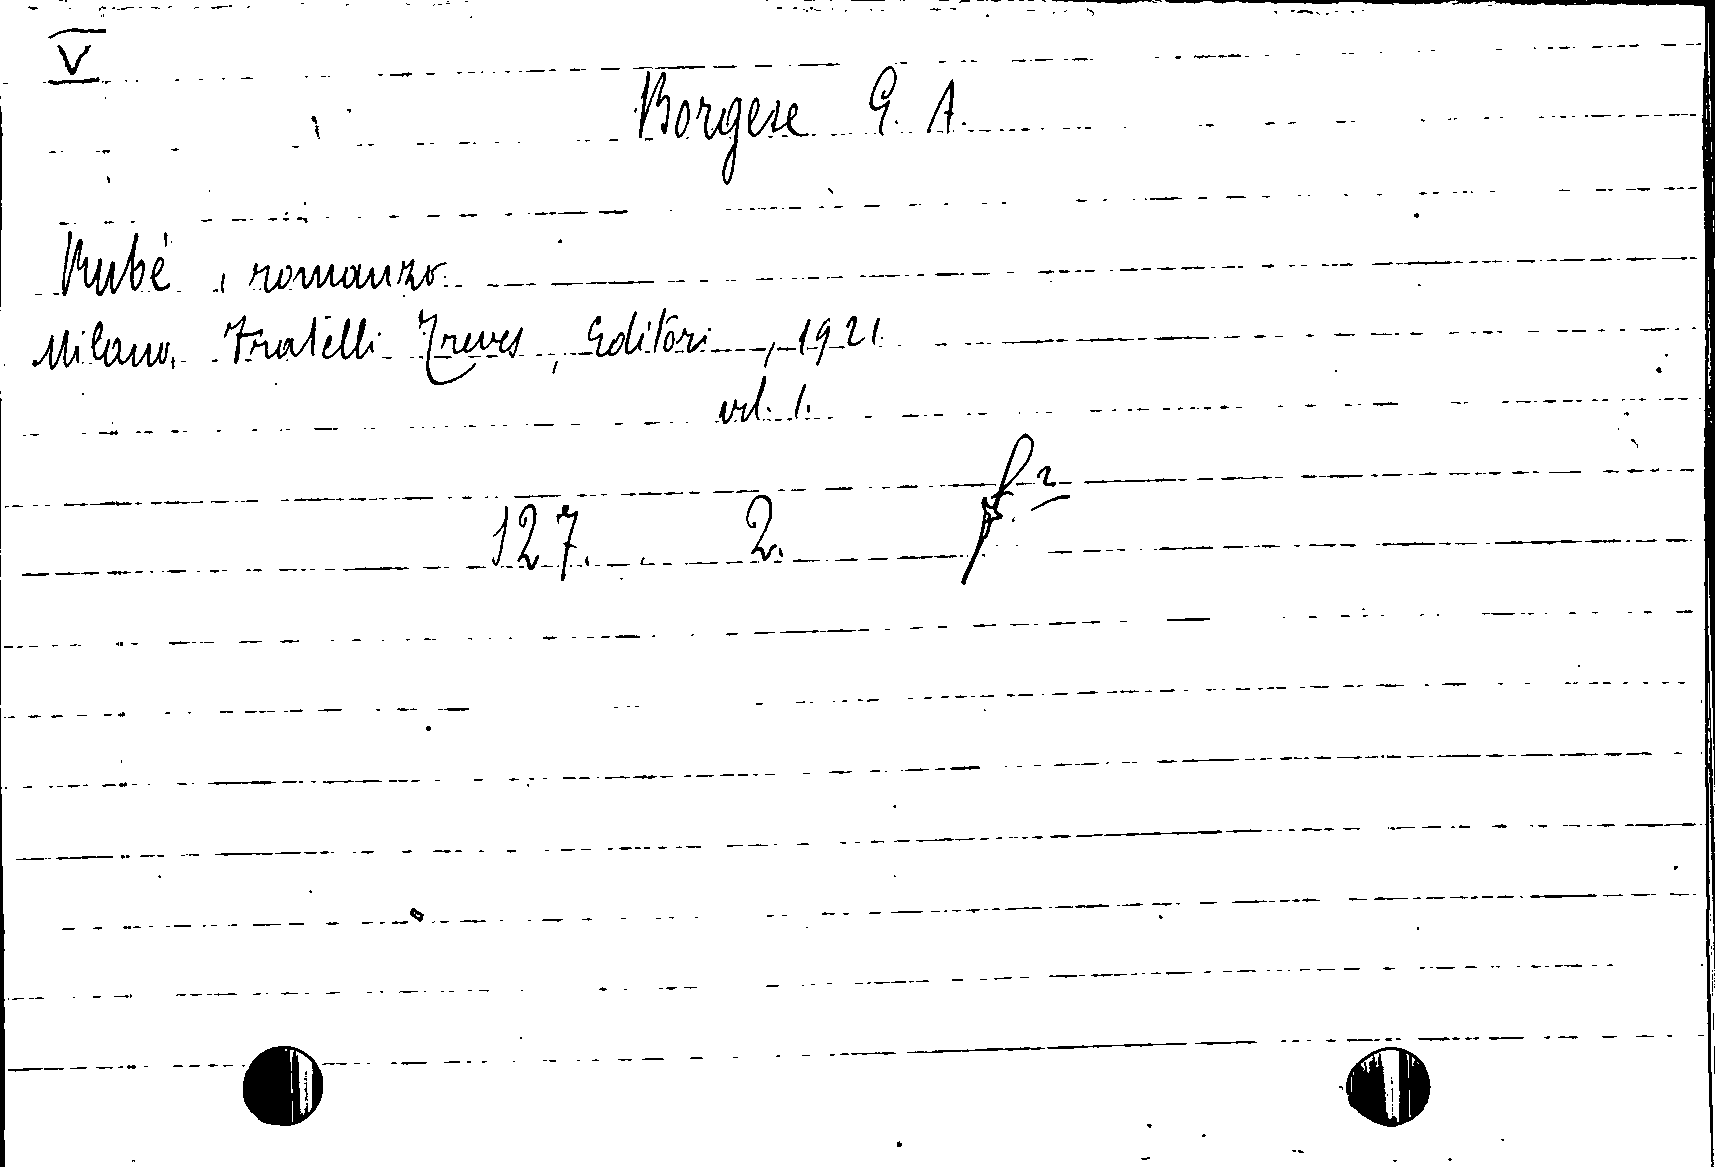 V
Borgese G. A.
Rubè, romanzo.
Milano, Fratelli Treves, Editori, 1921
vol. 1.
127. 2.